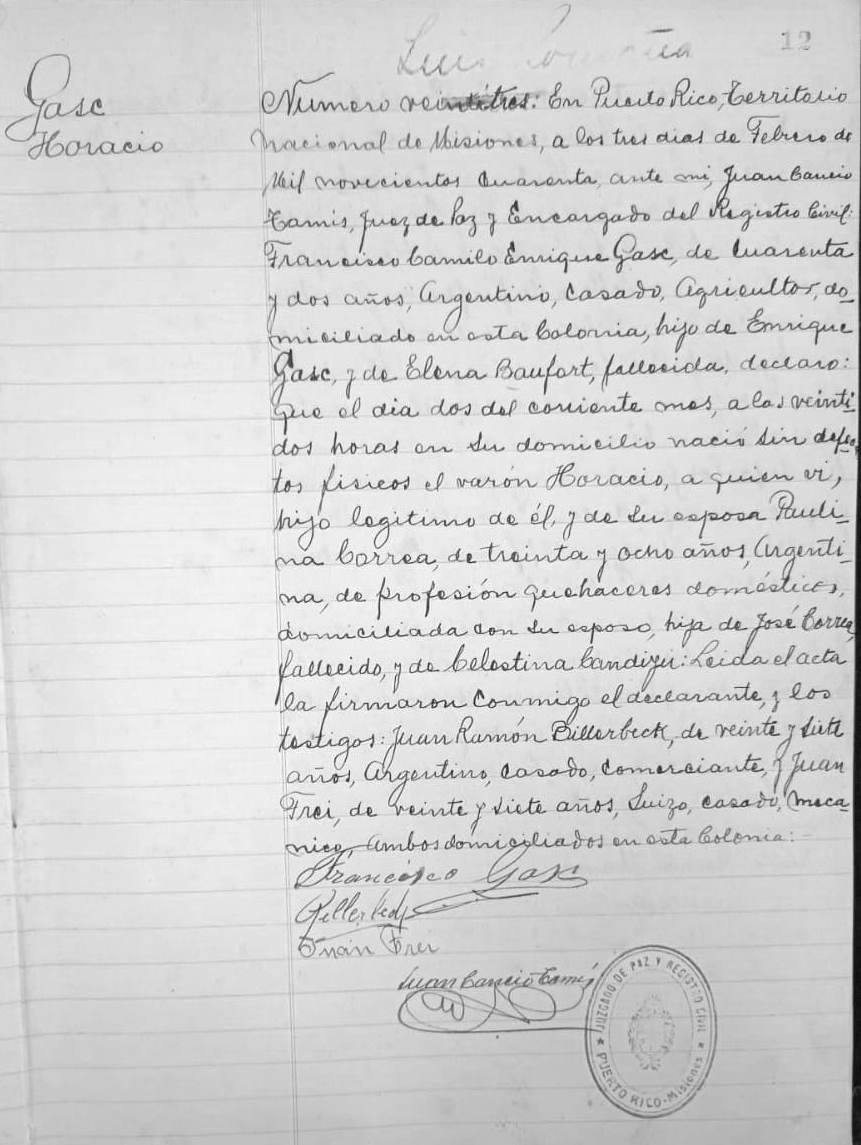 12
Gasc
Horacio
Número veintitres: En Puerto Rico, Territorio
Nacional de Misiones, a los tres dias de Febrero de
Mil novecientos Cuarenta, ante mi, Juan Cancio
Tamis, Juez de Paz y Encargado del Registro Civil:
Francisco Camilo Enrique Gasc, de Cuarenta
y dos años, Argentino, Casado, Agricultor, do_
miciliado en esta Colonia, hijo de Enrique
Gasc, y de Elena Baufort, fallecida, declaro:
que el dia dos del corriente mes, a las veinti_
dos horas en su domicilio nació sin defec_
tos fisicos el varón Horacio, a quien vi,
hijo legitimo de él, y de su esposa Pauli_
na Correa, de treinta y ocho años, Argenti_
na, de profesión quehaceres domésticos,
domiciliada con su esposo, hija de José Correa,
fallecido, y de Celestina: Leida el acta
la firmaron Conmigo el declarante, y los
testigos: Juan Ramón Billerbeck, de veinte y siete
años, Argentino, casado, comerciante, y Juan
Frei, de veinte y siete años, Suizo, casado, meca_
nico, Ambos domiciliados en esta Colonia:-
Francisco Gasc
Juan Frei
Juan Cancio Tamis
★ JUZGADO DE PAZ Y REGISTRO CIVIL ★
PUERTO RICO-Misiones